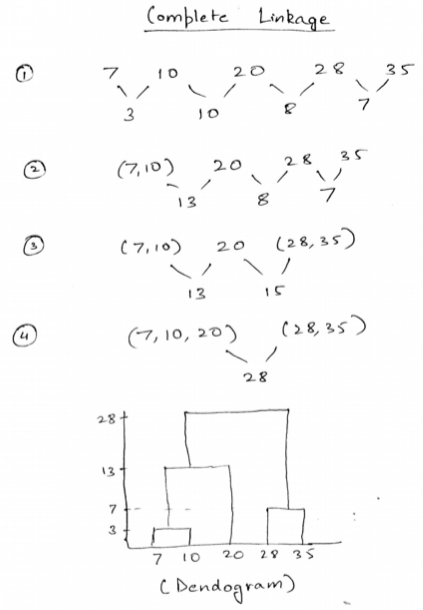 Complete Linkage
① 7 10 20 28 35
3 10 8 7
② (7,10) 20 28 35
13 8 7
③ (7,10) 20 (28,35)
13 15
④ (7,10,20) (28,35)
28
28
13
7
3
7 10 20 28 35
(Dendogram)